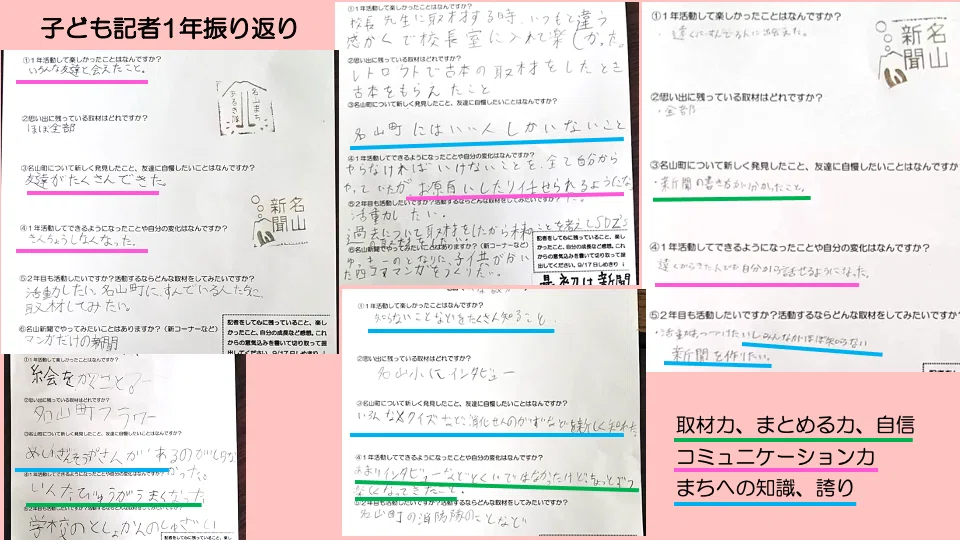 子ども記者1年振り返り
①1年活動して楽しかったことはなんですか?
いろんな友達と会えたこと。
②思い出に残っている取材はどれですか?
ほぼ全部
③名山町について新しく発見したこと、友達に自慢したいことはなんですか?
友達がたくさんできた。
④1年活動してできるようになったことや自分の変化はなんですか?
きんちょうしなくなった。
⑤2年目も活動したいですか?活動するならどんな取材をしてみたいですか?
活動したい。名山町に、すんでいる人たちに
取材してみたい。
⑥名山新聞でやってみたいことはありますか?(新コーナーなど)
マンガだけの新聞
名山新聞
①1年活動して楽しかったことはなんですか?
絵をかくこと
②思い出に残っている取材はどれですか?
名山町フラワー
③名山町について新しく発見したこと、友達に自慢したいことはなんですか?
④1年活動してできるようになったことや自分の変化はなんですか?
⑤2年目も活動したいですか?活動するならどんな取材をしてみたいですか?
学校のとしょかんのしゅざい
①1年活動して楽しかったことはなんですか?
校長先生に取材する時、いつもと違う
感かくで校長室に入れて楽しかった。
②思い出に残っている取材はどれですか?
レトロフトで古本の取材をしたとき
古本をもらえたこと
③名山町について新しく発見したこと、友達に自慢したいことはなんですか?
名山町にはいい人しかいないこと
④1年活動してできるようになったことや自分の変化はなんですか?
やらなければいけないことを、全て自分から
やっていたが、お願いしたり任せられるようにな
⑤2年目も活動したいですか?活動するならどんな取材をしてみたいですか?
活動したい。
過去について取材をしたから未来のことを考えSDZ's
の取材をしたい。
⑥名山新聞でやってみたいことはありますか?(新コーナーなど)
ゆっきーのとなりに、子供がかいた
四コママンガをつくりたい。
記者をして心に残っていること、楽しかったこと、自分の成長など感想。これからの意気込みを書いて切り取って提出してください。9/17日しめきり
最初は新聞
①1年活動して楽しかったことはなんですか?
知らないことなどをたくさん知ること
②思い出に残っている取材はどれですか?
名山小にインタビュー
③名山町について新しく発見したこと、友達に自慢したいことはなんですか?
いろんなクイズなど、消化せんのかずなどを新しく知れた。
④1年活動してできるようになったことや自分の変化はなんですか?
あまりインタビューなどとくいではなかったけど、ちょっとずつ
なくなってきたこと。
⑤2年目も活動したいですか?活動するならどんな取材をしてみたいですか?
名山町の消防隊のことなど
①1年活動して楽しかったことはなんですか?
・遠くにすんでる人に出会えた。
名山新聞
②思い出に残っている取材はどれですか?
・全部
③名山町について新しく発見したこと、友達に自慢したいことはなんですか?
・新聞の書き方が分かったこと。
④1年活動してできるようになったことや自分の変化はなんですか?
遠くからきた人でも自分から話せるようになった。
⑤2年目も活動したいですか?活動するならどんな取材をしてみたいですか?
・活動はつづけたいしみんながほぼ知らない
新聞を作りたい。
取材力、まとめる力、自信
コミュニケーション力
まちへの知識、誇り